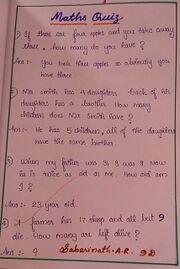 Maths Quiz
1) If there are four apples and you take away
three, how many do you have?
Ans:- You took three apples so obviously you
have three.
2) Mr. Smith has 4 daughters. Each of his
daughters has a brother. How many
children does Mr. Smith have?
Ans :- He has 5 children, all of the daughters
have the same brother.
3) When my father was 31 I was 8. Now
he is twice as old as me. How old am
I ?
Ans :- 23 year old.
4) A farmer has 17 sheep and all but 9
die. How many are left alive?
Ans :- 9
Sabarinath.A.R. 9D